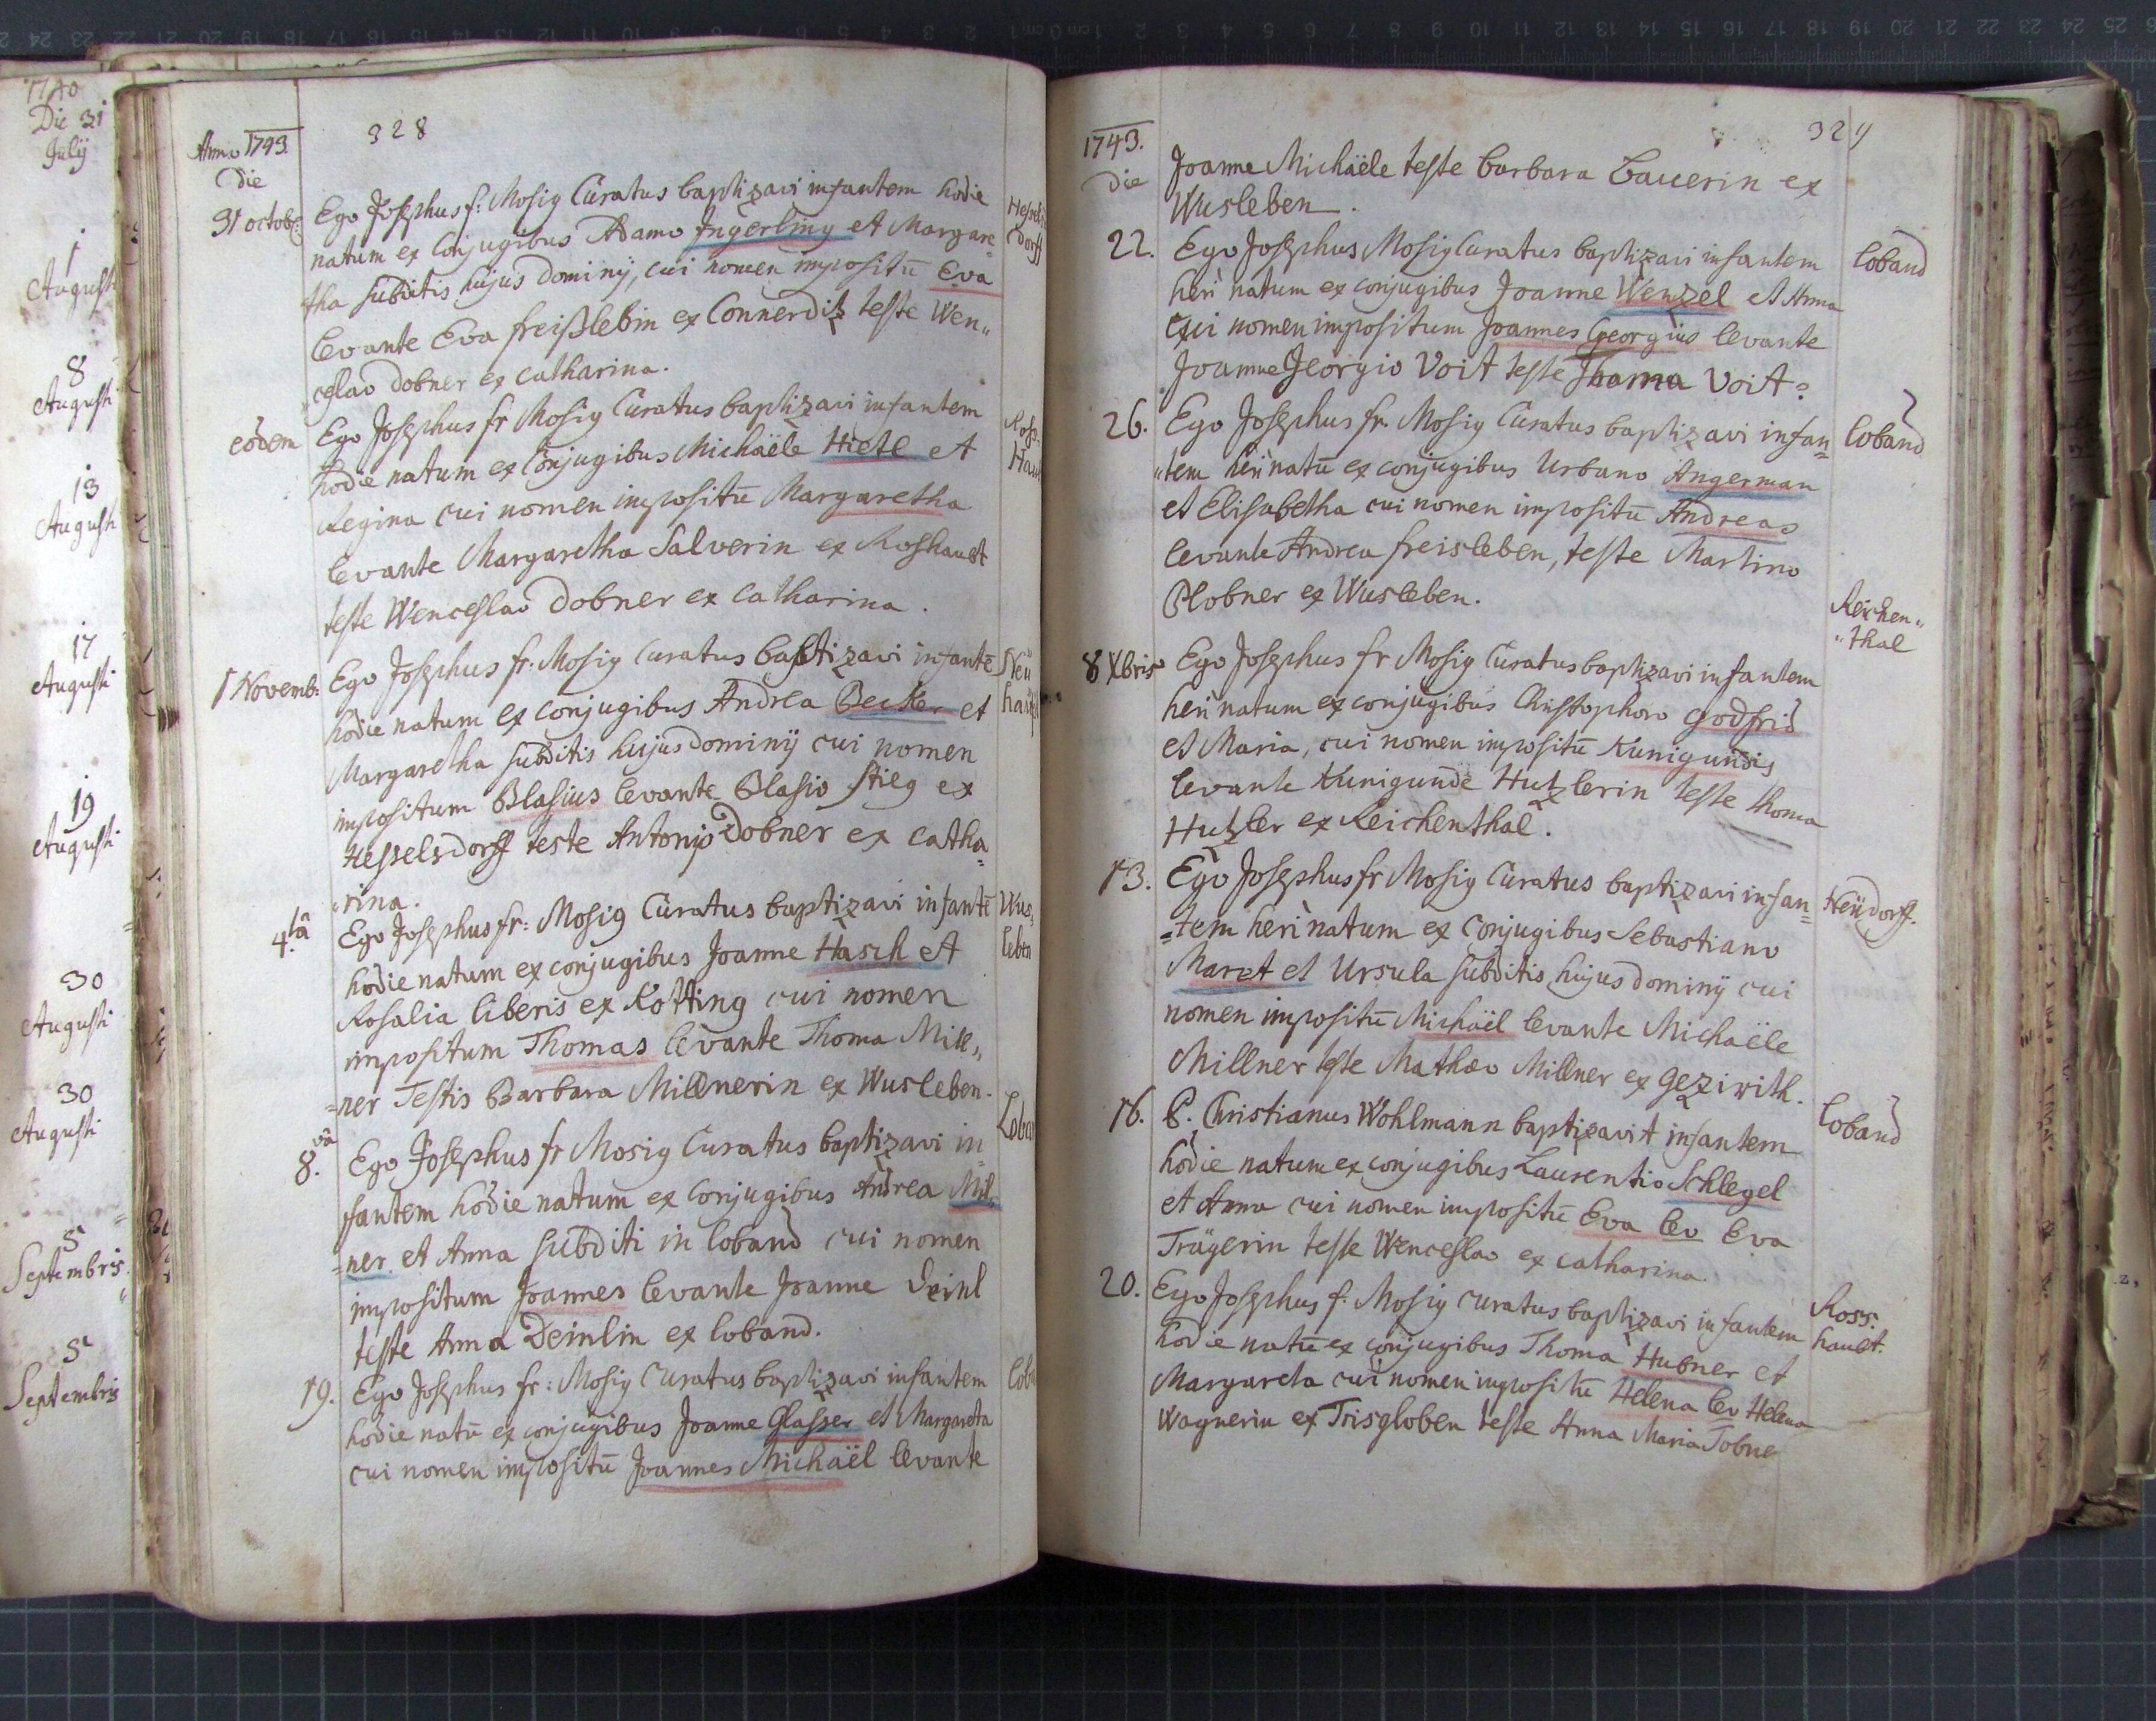 1740
Die 31
July
1
Augusti
8
Augusti
13
Augusti
17
Augusti
19
Augusti
30
Augusti
30
Augusti
5
Septembris
5
Septembris
Anno 1743.
328
Die
31 octob:
Ego Josephus f: Mosig Curatus baptizavi infantem hodie
natum ex Conjugibus Adamo Ingerling et Margare
tha subditis hujus dominij, cui nomen impositū Eva
levante Eva freißlebin ex Connerditz teste Wen„
ceslao dobner ex catharina.
Hessels
dorff
eodem
Ego Josephus fr Mosig Curatus baptizavi infantem
hodie natum ex Conjugibus Michaële Hietl et
Regina cui nomen impositū Margaretha
levante Margaretha Salverin ex Roshaubt
teste Wenceslao Dobner ex catharina.
Ross
Hau
1 Novemb:
Ego Josephus fr: Mosig Curatus baptizavi infantē
hodie natum ex conjugibus Andrea Becker et
Margaretha subditis hujus dominij cui nomen
impositum Blasius levante Blasio Stieg ex
Hesselsdorff teste Antonio Dobner ex catha=
rina.
Neu
häu
4.tâ
Ego Josephus fr: Mosig Curatus baptizavi infantē
hodie natum ex conjugibus Joanne Hasch et
Rosalia liberis ex Kotting cui nomen
impositum Thomas levante Thoma Mill„
=ner Testis Barbara Millnerin ex Wusleben.
Wus,
leben
8.vâ
Ego Josephus fr Mosig Curatus baptizavi in=
fantem hodie natum ex conjugibus Andrea Mil„
=ner et Anna subditi in loband cui nomen
impositum Joannes levante Joanne Deinl
teste Anna Deinlin ex loband.
Loba
19.
Ego Josephus fr: Mosig Curatus baptizavi infantem
hodie natū ex conjugibus Joanne Glasser et Margareta
cui nomen impositū Joannes Michaël levante
Loba
1743.
329
Die
Joanne Michaële teste barbara Bauerin ex
Wusleben.
22.
Ego Josephus Mosig Curatus baptizavi infantem
heri natum ex conjugibus Joanne Wenzel et Anna
cui nomen impositum Joannes Georgius levante
Joanne Georgio Voit teste Thoma Voit.
Loband
26.
Ego Josephus fr. Mosig Curatus baptizavi infan=
„tem heri natū ex conjugibus Urbano Angerman
et Elisabetha cui nomen impositū Andreas
levante Andrea freisleben, teste Martino
Plobner ex Wusleben.
Loband
8 Xbris
Ego Josephus fr Mosig Curatus baptizavi infantem
heri natum ex conjugibus Christophoro Godfrid
et Maria, cui nomen impositū Kunigundis
levante Kunigunde Hutzlerin teste thoma
Hutzler ex Reichenthal.
Reichen„
„thal
13.
Ego Josephus fr Mosig Curatus baptizavi infan=
=tem heri natum ex Conjugibus Sebastiano
Maret et Ursula subditis hujus dominij cui
nomen impositū Michaël levante Michaële
Millner teste Mathæo Millner ex Gezirith.
Heüdorff.
16.
P. Christianus Wohlmann baptizavit infantem
hodie natum ex conjugibus Laurentio Schlegel
et Anna cui nomen impositū Eva lev Eva
Trägerin teste Wenceslao ex catharina.
Loband
20.
Ego Josephus f: Mosig curatus baptizavi infantem
hodie natū ex conjugibus Thoma Hubner et
Margareta cui nomen impositū Helena lev Helena
Wagnerin ex Trisgloben teste Anna Maria Tobner
Ross.
haubt.